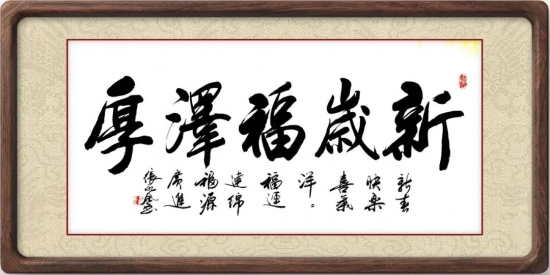 新歲福澤厚
新春
快樂
喜氣
洋〻
福運
連綿
福源
廣進